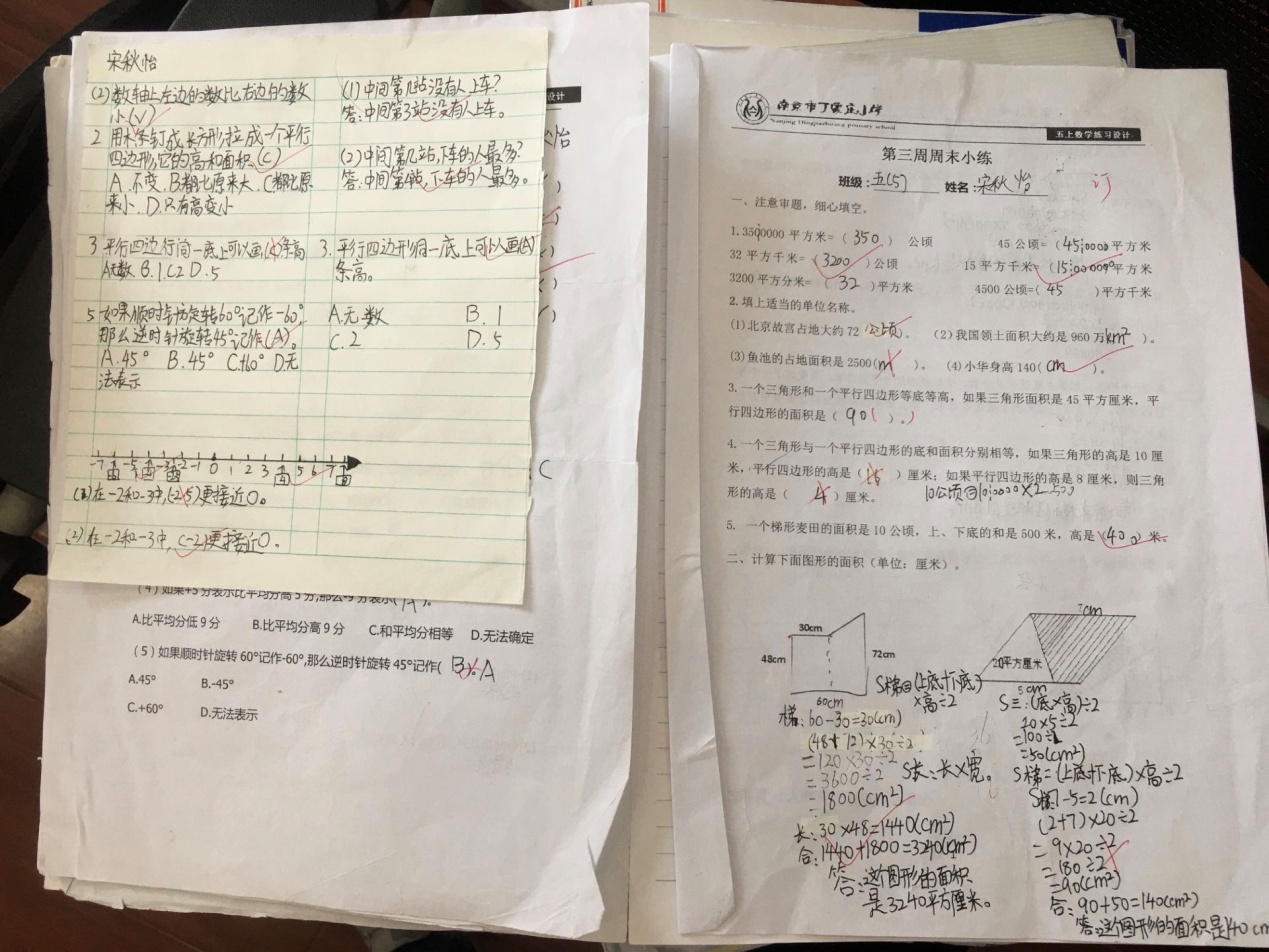 宋秋怡
(2)数轴上左边的数比右边的数
小(√)
2 用木条钉成长方形,拉成一个平行
四边形,它的高和面积(C)
A.不变.B都比原来大.C都比原
来小.D.只有高变小
3 平行四边行同一底上可以画(A)条高
A无数 B.1 C2 D.5
5.如果顺时针旋转60°记作-60°,
那么逆时针旋转45°记作(A)。
A.45° B.45° C.+60° D.无
法表示
-7 -5 -3 -2 -1 0 1 2 3 5 6 7
(1)在-2和-3中,(-2.5)更接近0。
(2)在-2和-3中,(-2)更接近0。
(1)中间第几站没有人上车?
答:中间第3站没有人上车。
(2)中间第几站,下车的人最多?
答:中间第4站,下车的人最多。
3.平行四边形同一底上可以画(A)
条高。
A.无数 B.1
C.2 D.5
设计
怡
C
(4)如果+5分表示比平均分高5分,那么-9分表示(A)。
A.比平均分低9分 B.比平均分高9分 C.和平均分相等 D.无法确定
(5)如果顺时针旋转60°记作-60°,那么逆时针旋转45°记作(B)。A
A.45° B.-45°
C.+60° D.无法表示
南京市丁家庄小学
Nanjing Dingjiazhuang primary school
五上数学练习设计
第三周周末小练
班级:五(5) 姓名:宋秋怡
订
一、注意审题,细心填空。
1.3500000平方米=(350)公顷 45公顷=(450000)平方米
32平方千米=(3200)公顷 15平方千米=(15000000)平方米
3200平方分米=(32)平方米 4500公顷=(45)平方千米
2.填上适当的单位名称。
(1)北京故宫占地大约72公顷。 (2)我国领土面积大约是960万km²)。
(3)鱼池的占地面积是2500(m)。 (4)小华身高140(cm)。
3.一个三角形和一个平行四边形等底等高,如果三角形面积是45平方厘米,平
行四边形的面积是(90)
4.一个三角形与一个平行四边形的底和面积分别相等,如果三角形的高是10厘
米,平行四边形的高是()厘米;如果平行四边形的高是8厘米,则三角
形的高是(4)厘米。
5.一个梯形麦田的面积是10公顷,上、下底的和是500米,高是(400)米。
二、计算下面图形的面积(单位:厘米)。
30cm
48cm
72cm
60cm
7cm
20平方厘米
5cm
S梯=(上底+下底)
×高÷2
梯:60-30=30(cm)
(48+72)×30÷2
=120×30÷2
=3600÷2
=1800(cm²)
S长:长×宽。
长:30×48=1440(cm²)
合:1440+1800=3240(cm²)
答:这个图形的面积
是3240平方厘米。
S三:(底×高)÷2
20×5÷2
=100÷2
=50(cm²)
S梯=(上底+下底)×高÷2
S梯:7-5=2(cm)
(2+7)×20÷2
=9×20÷2
=180÷2
=90(cm²)
合:90+50=140(cm²)
答:这个图形的面积是140cm